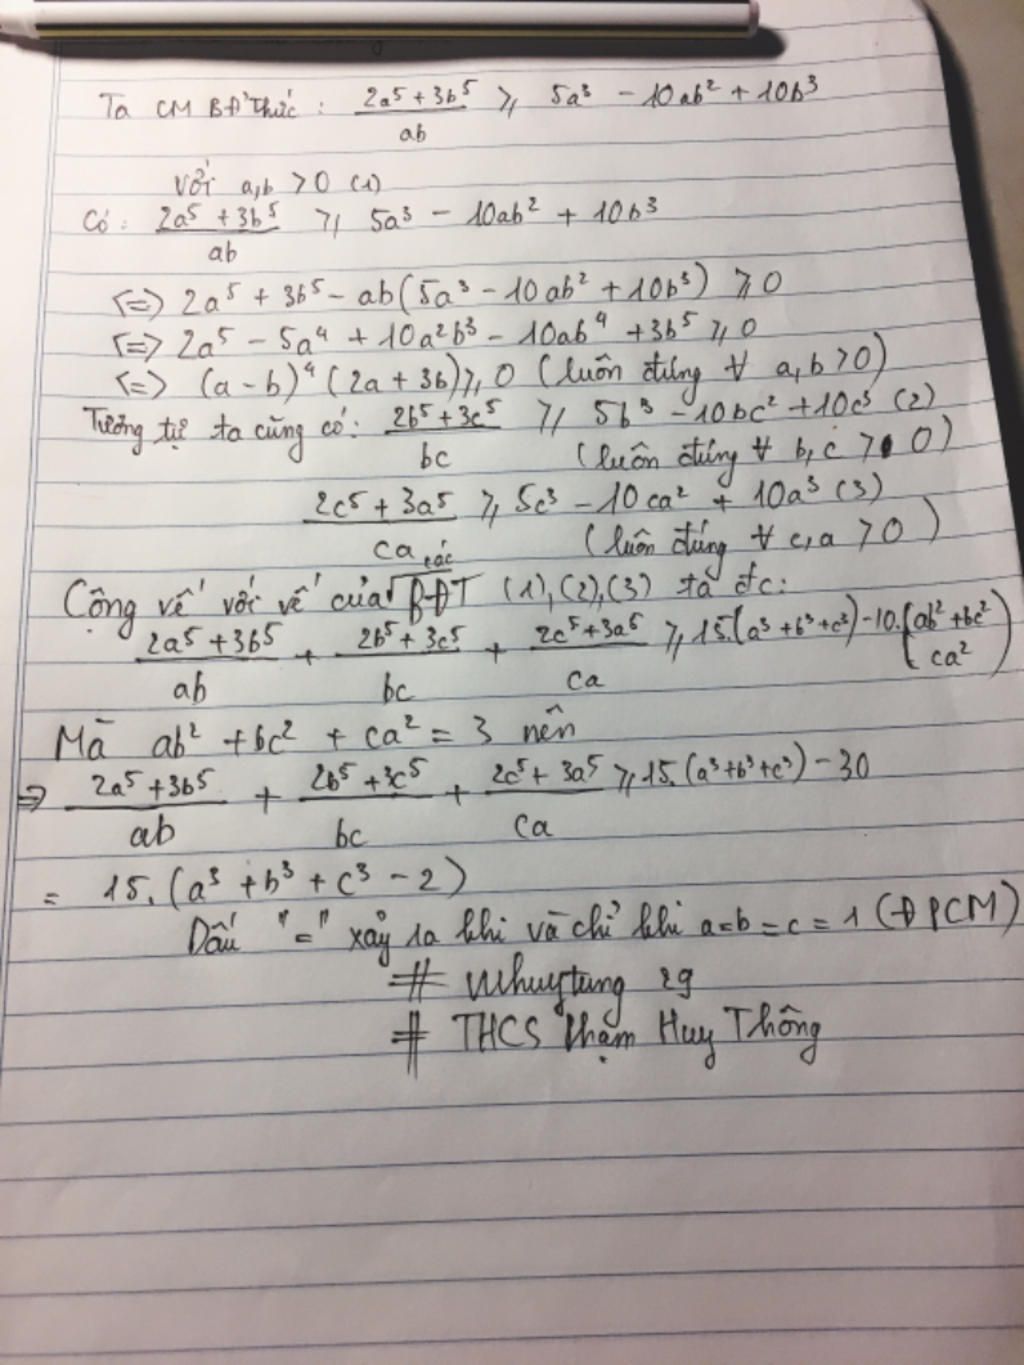 Ta CM BĐ Thức : (2a⁵ + 3b⁵)/ab ⩾ 5a³ - 10ab² + 10b³
Với a,b > 0 (1)
Có : (2a⁵ + 3b⁵)/ab ⩾ 5a³ - 10ab² + 10b³
<=> 2a⁵ + 3b⁵ - ab(5a³ - 10ab² + 10b³) ⩾ 0
<=> 2a⁵ - 5a⁴ + 10a²b³ - 10ab⁴ + 3b⁵ ⩾ 0
<=> (a - b)⁴ (2a + 3b) ⩾ 0 (luôn đúng ∀ a,b > 0)
Tương tự ta cũng có: (2b⁵ + 3c⁵)/bc ⩾ 5b³ - 10bc² + 10c³ (2)
(luôn đúng ∀ b,c > 0)
(2c⁵ + 3a⁵)/ca ⩾ 5c³ - 10ca² + 10a³ (3)
(luôn đúng ∀ c,a > 0)
Cộng vế với vế của các BĐT (1),(2),(3) ta đc:
(2a⁵ + 3b⁵)/ab + (2b⁵ + 3c⁵)/bc + (2c⁵ + 3a⁵)/ca ⩾ 15.(a³ + b³ + c³) - 10.(ab² + bc² ca²)
Mà ab² + bc² + ca² = 3 nên
=> (2a⁵ + 3b⁵)/ab + (2b⁵ + 3c⁵)/bc + (2c⁵ + 3a⁵)/ca ⩾ 15.(a³ + b³ + c³) - 30
= 15.(a³ + b³ + c³ - 2)
Dấu "=" xảy ra khi và chỉ khi a=b=c=1 (ĐPCM)
# 29
# THCS Phạm Huy Thông